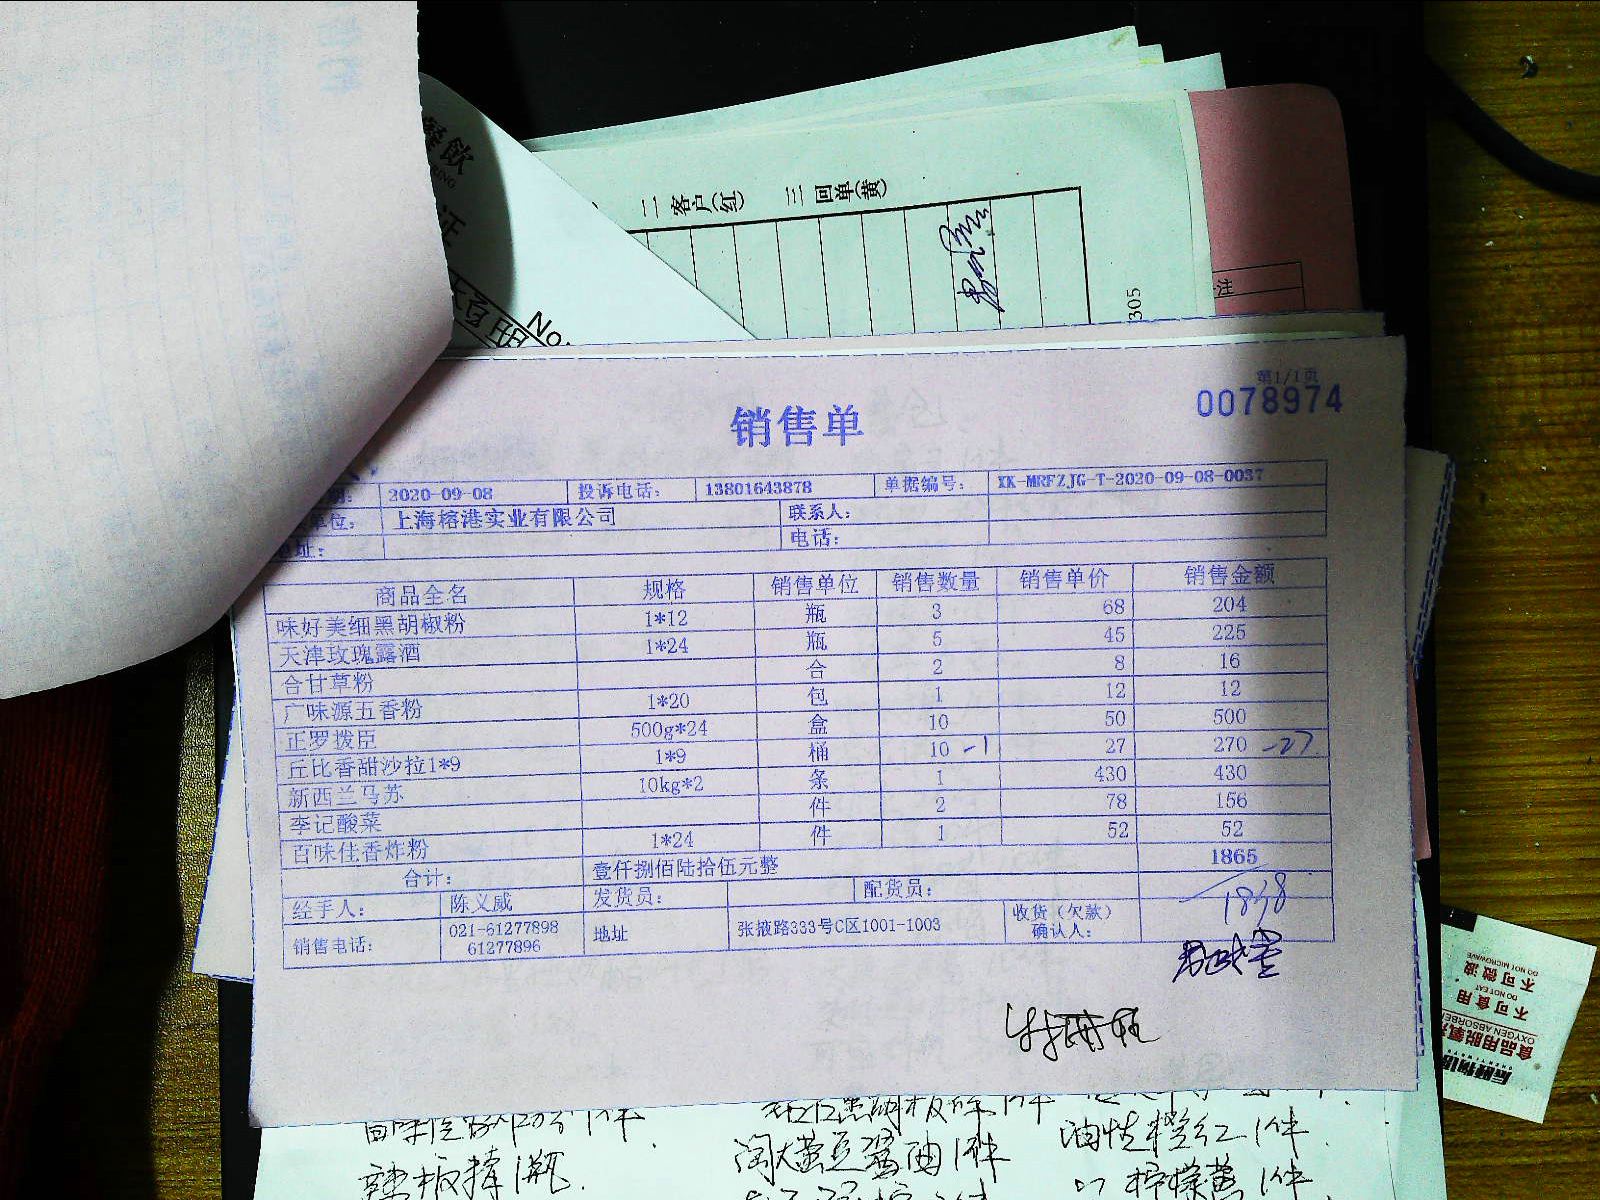 餐饮
证
No.
二 客户(红) 三 回单(黄)
305
第1/1页
0078974
销售单
期: 2020-09-08 投诉电话: 13801643878 单据编号: XK-MRFZJG-T-2020-09-08-0037
单位: 上海榕港实业有限公司 联系人:
地址: 电话:
商品全名 规格 销售单位 销售数量 销售单价 销售金额
味好美细黑胡椒粉 1*12 瓶 3 68 204
天津玫瑰露酒 1*24 瓶 5 45 225
合甘草粉 合 2 8 16
广味源五香粉 1*20 包 1 12 12
正罗拨臣 500g*24 盒 10 50 500
丘比香甜沙拉1*9 1*9 桶 10 -1 27 270 -27
新西兰马苏 10kg*2 条 1 430 430
李记酸菜 件 2 78 156
百味佳香炸粉 1*24 件 1 52 52
合计: 壹仟捌佰陆拾伍元整 1865
1838
经手人: 陈义威 发货员: 配货员:
销售电话: 021-61277898 61277896 地址 张掖路333号C区1001-1003 收货(欠款)确认人:
淘大黄豆酱油1件
油性橙红1件
柠檬黄1件
不可微波
DO NOT MICROWAVE
不可食用
DO NOT EAT
OXYGEN ABSORBER
食品用脱氧剂